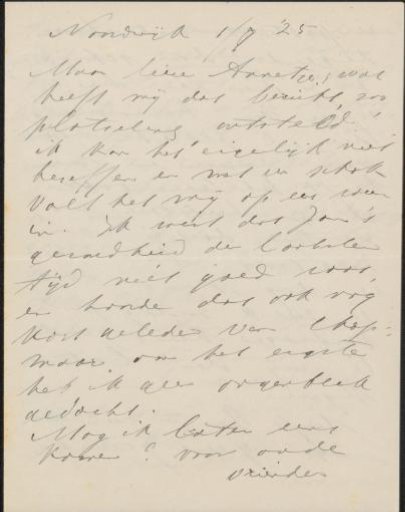 Noordwijk 1/9 '25
Mijn lieve Annetje, wat
heeft mij dat bericht zoo
plotseling ontsteld!
ik kan het eigenlijk niet
beseffen en met een schok
valt het mij op eens weer
in. Ik wist dat Jan's
gezondheid de laatste
tijd niet goed was,
en hoorde dat ook nog
kort geleden van
maar om het ergste
heb ik geen oogenblik
gedacht.
Mag ik later eens
komen? voor oude
vrienden